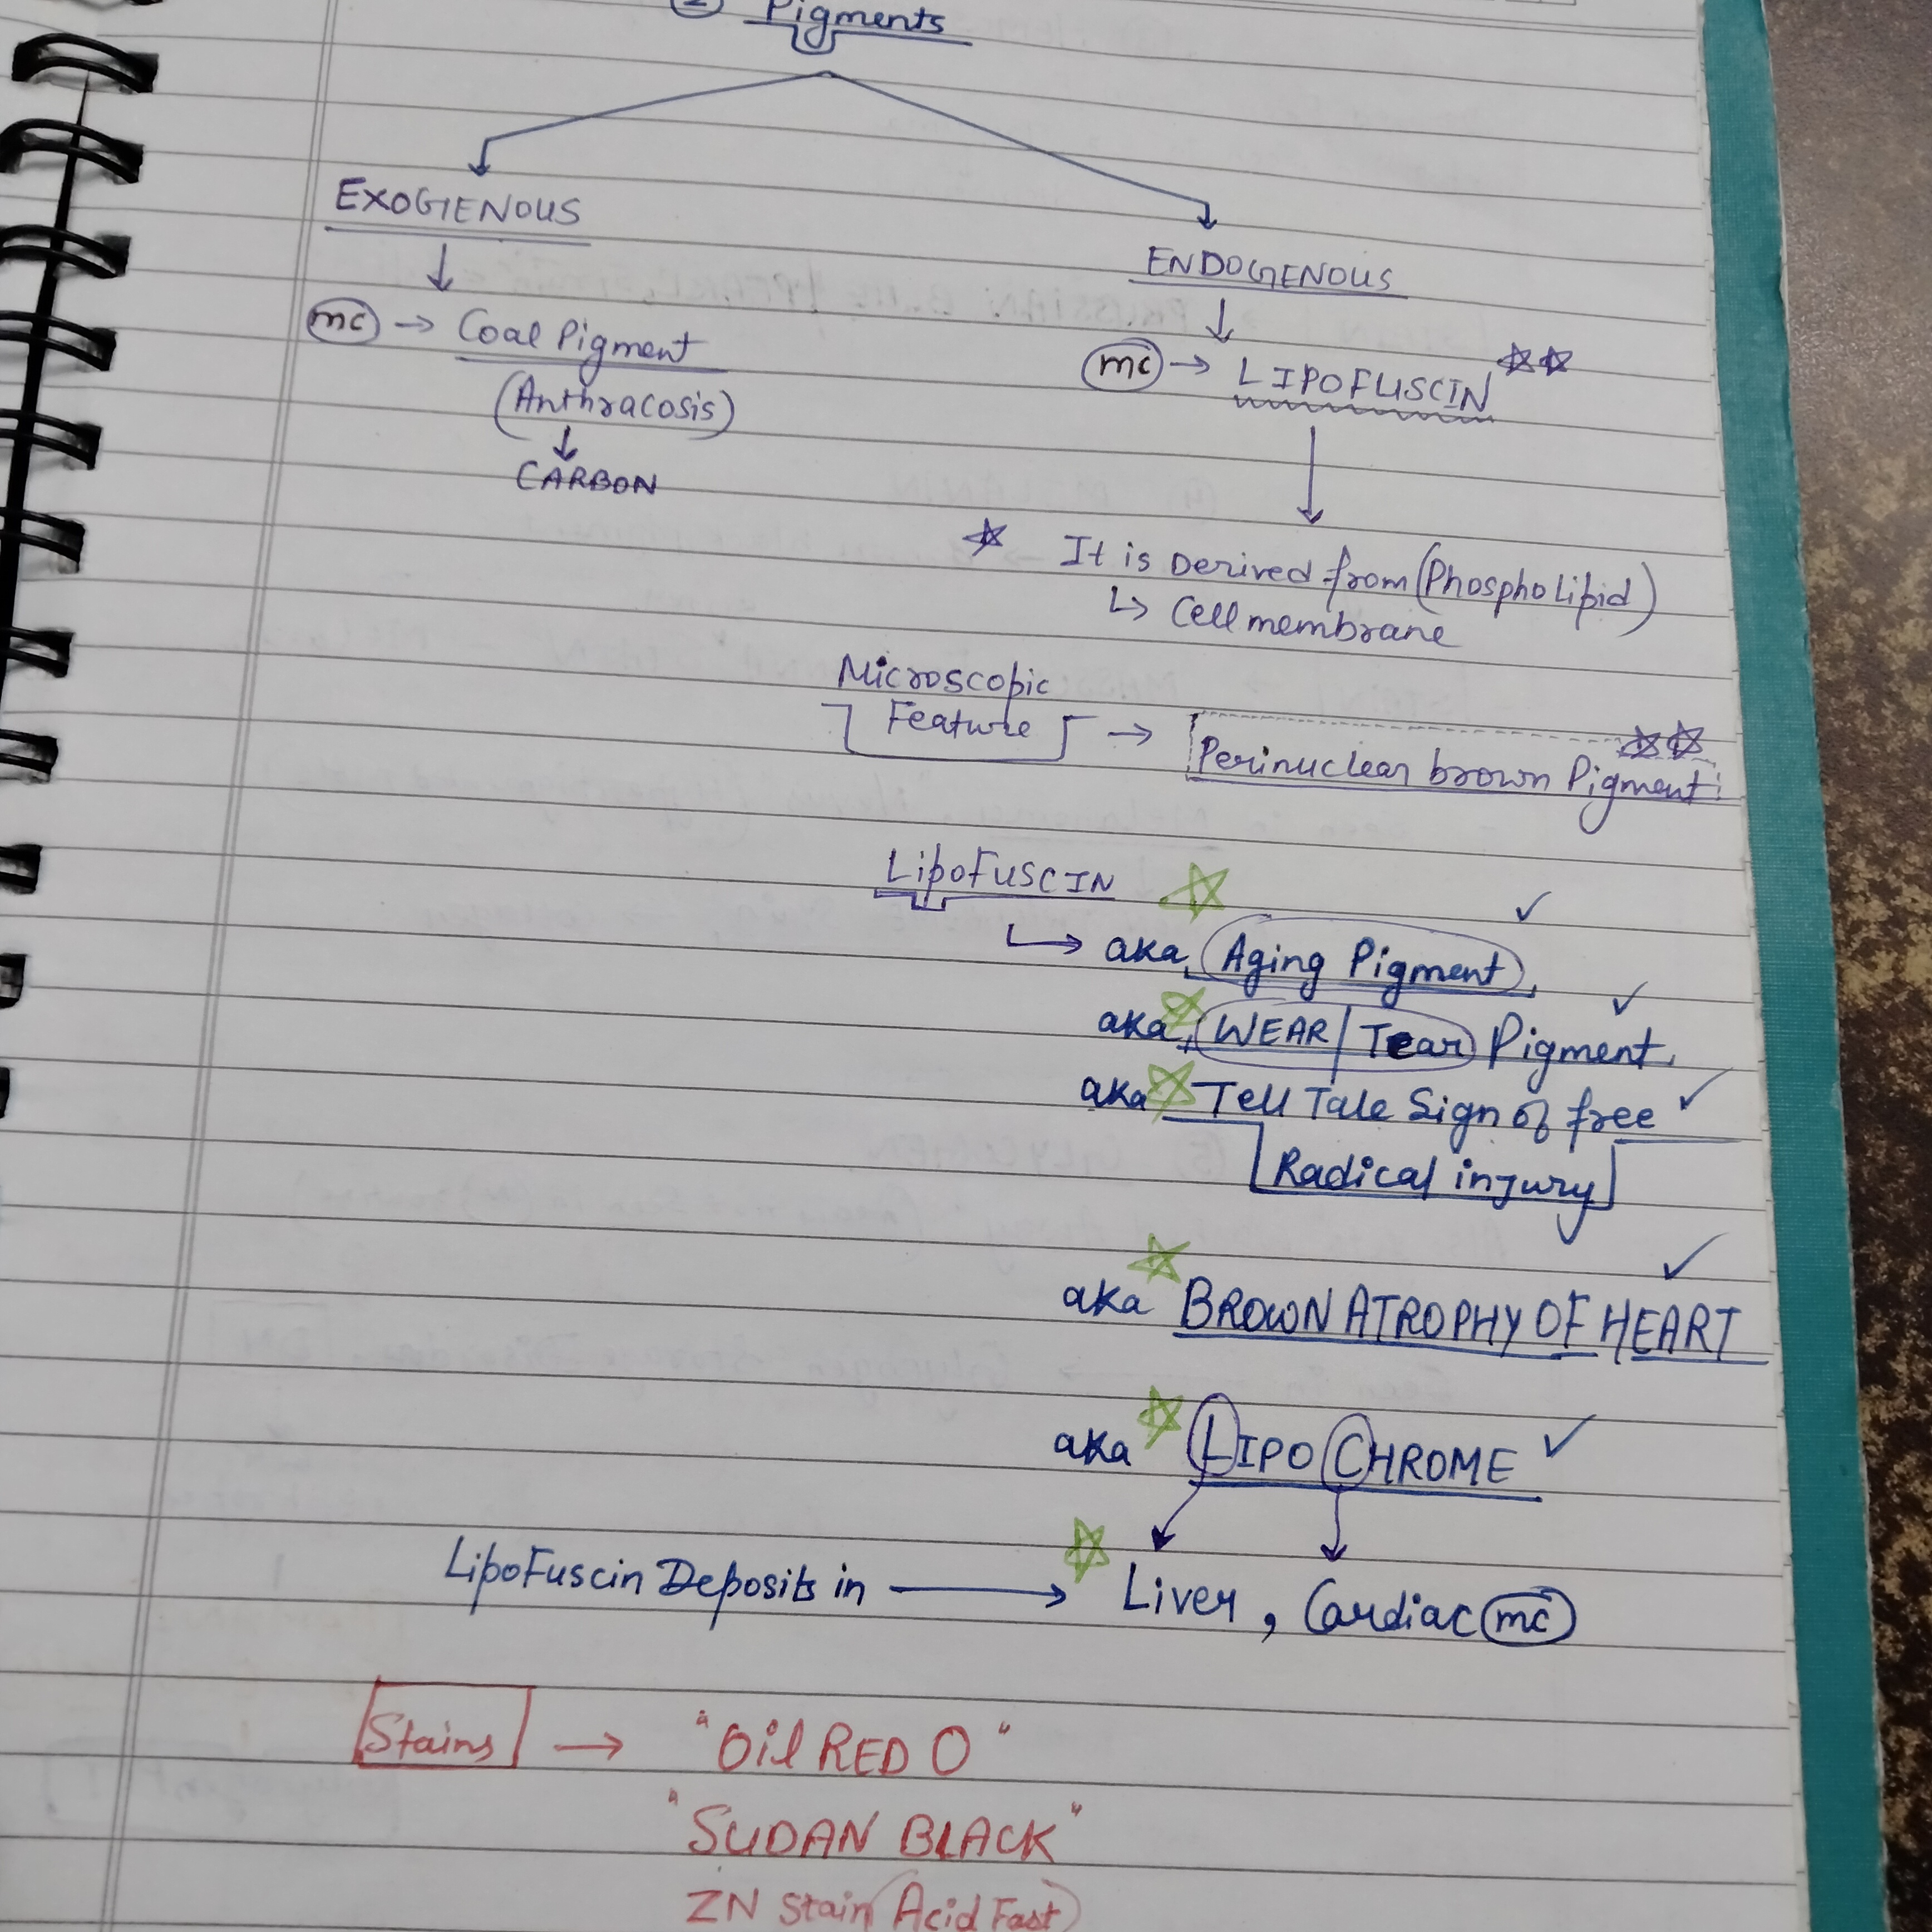 ② Pigments
EXOGENOUS
ENDOGENOUS
mc → Coal Pigment
(Anthracosis)
CARBON
mc → LIPOFUSCIN
It is Derived from (Phospho Lipid)
↳ Cell membrane
Microscopic
Feature → Perinuclear brown Pigment
LipoFUSCIN
aka, Aging Pigment,
aka, WEAR/Tear Pigment,
aka Tell Tale Sign of free
Radical injury
aka BROWN ATROPHY OF HEART
aka LIPO CHROME
LipoFuscin Deposits in → Liver, Cardiac mc
Stains → "Oil RED O"
"SUDAN BLACK"
ZN Stain (Acid Fast)